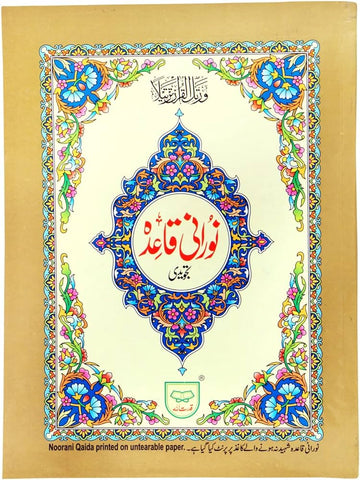 ورتل القرآن ترتيلا
نُورانی قاعِدہ
تجویدی
®
قدرت اللہ
Noorani Qaida printed on untearable paper. نورانی قاعدہ شہید نہ ہونے والے کاغذ پر پرنٹ کیا گیا ہے۔